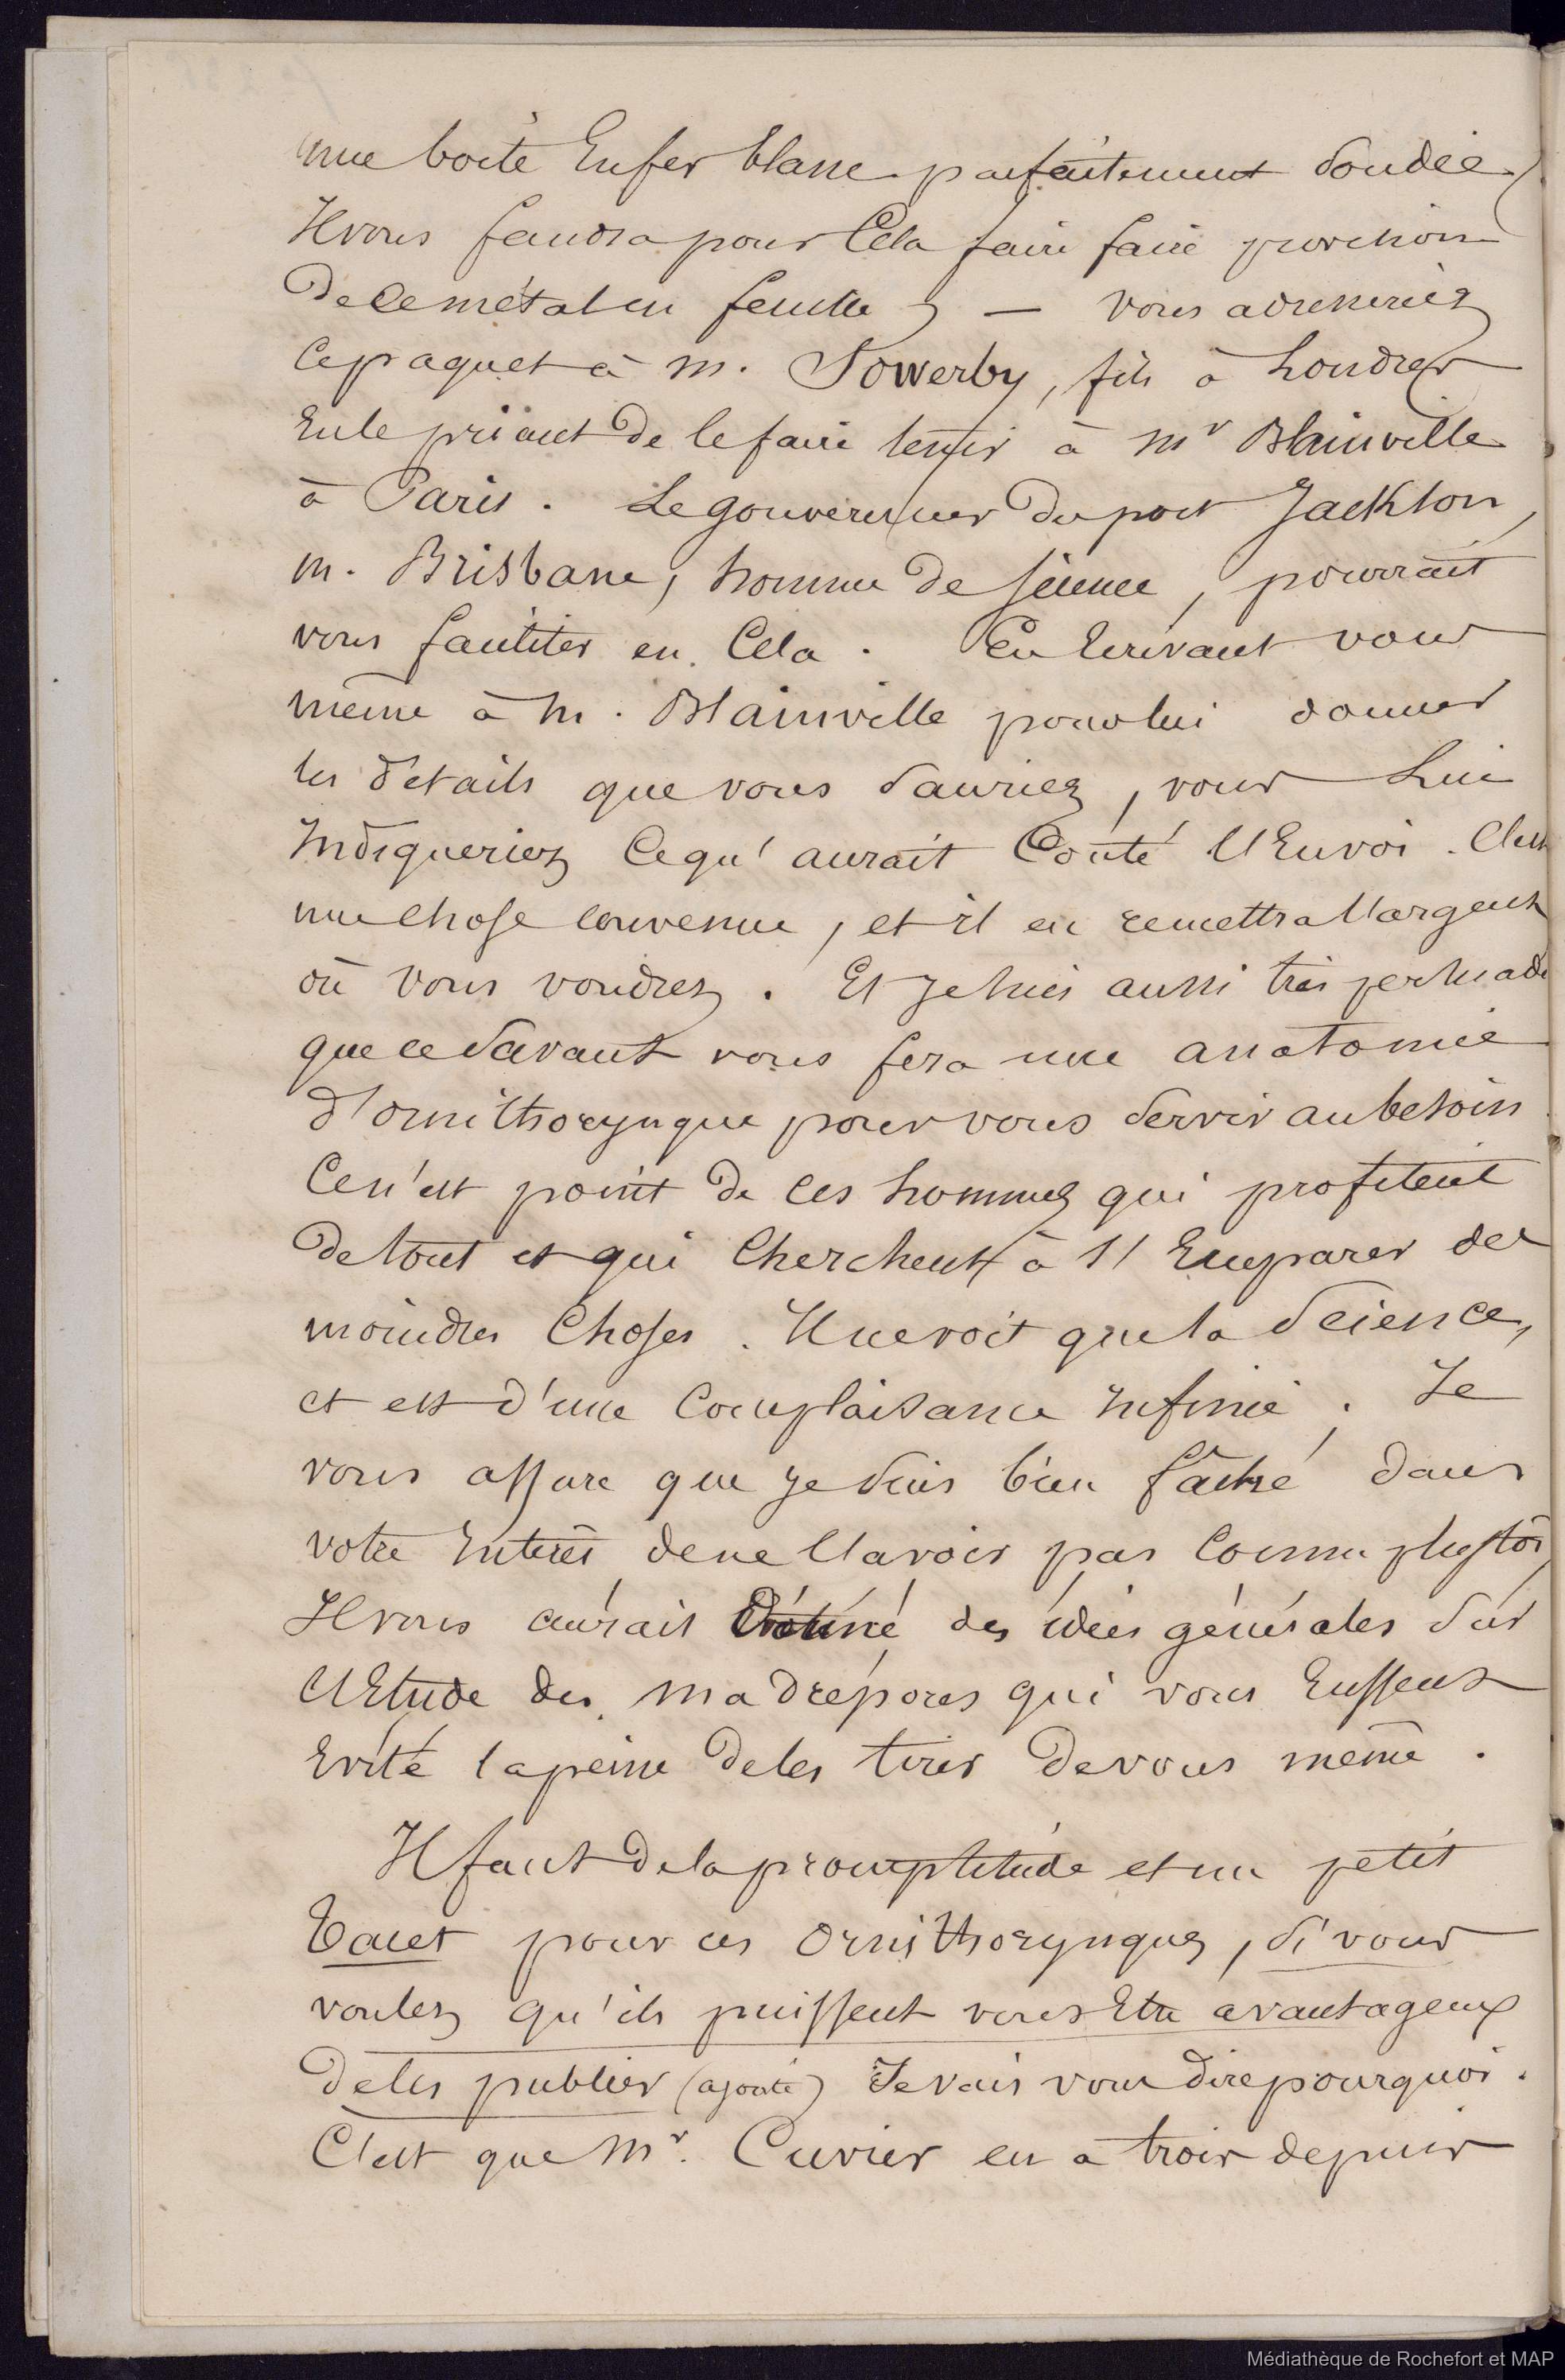 une boîte en fer blanc parfaitement soudée,
Il vous faudra pour Cela faire faire provision
de ce métal en feuilles — vous adresseriez
Ce paquet à m. Sowerby, fils à Londres
En le priant de le faire tenir à mr Blainville
à Paris. Le gouverneur du port Jackson,
m. Brisbane, homme de science, pourrait
vous faciliter en Cela. En Ecrivant vous
même à M. Blainville pour lui donner
les détails que vous sauriez, vous Lui
Indiqueriez Ce qu'aurait Couté l'Envoi. C'est
une Chose convenue, et il en remettra l'argent
où vous voudrez. Et Je suis aussi très persuadé
que ce Savant vous fera une anatomie
d'ornithorynque pour vous Servir au besoin
Ce n'est point de ces hommes qui profitent
De tout et qui Cherchent à s'Emparer des
moindres Choses. Il ne voit que la Science,
et est d'une Complaisance Infinie. Je
vous assure que Je suis bien fâché dans
votre Interêt de ne l'avoir pas Connu plustôt,
Il vous aurait donné des idées générales sur
l'Etude des madrépores qui vous Eussent
Evité la peine de les tirer de vous même.
Il faut de la promptitude et un petit
tacet pour ces Ornithorynques, si vous
voulez qu'ils puissent vous Etre avantageux
de les publier (ajouté) Je vais vous dire pourquoi.
C'est que Mr. Cuvier en a trois depuis
Médiathèque de Rochefort et MAP